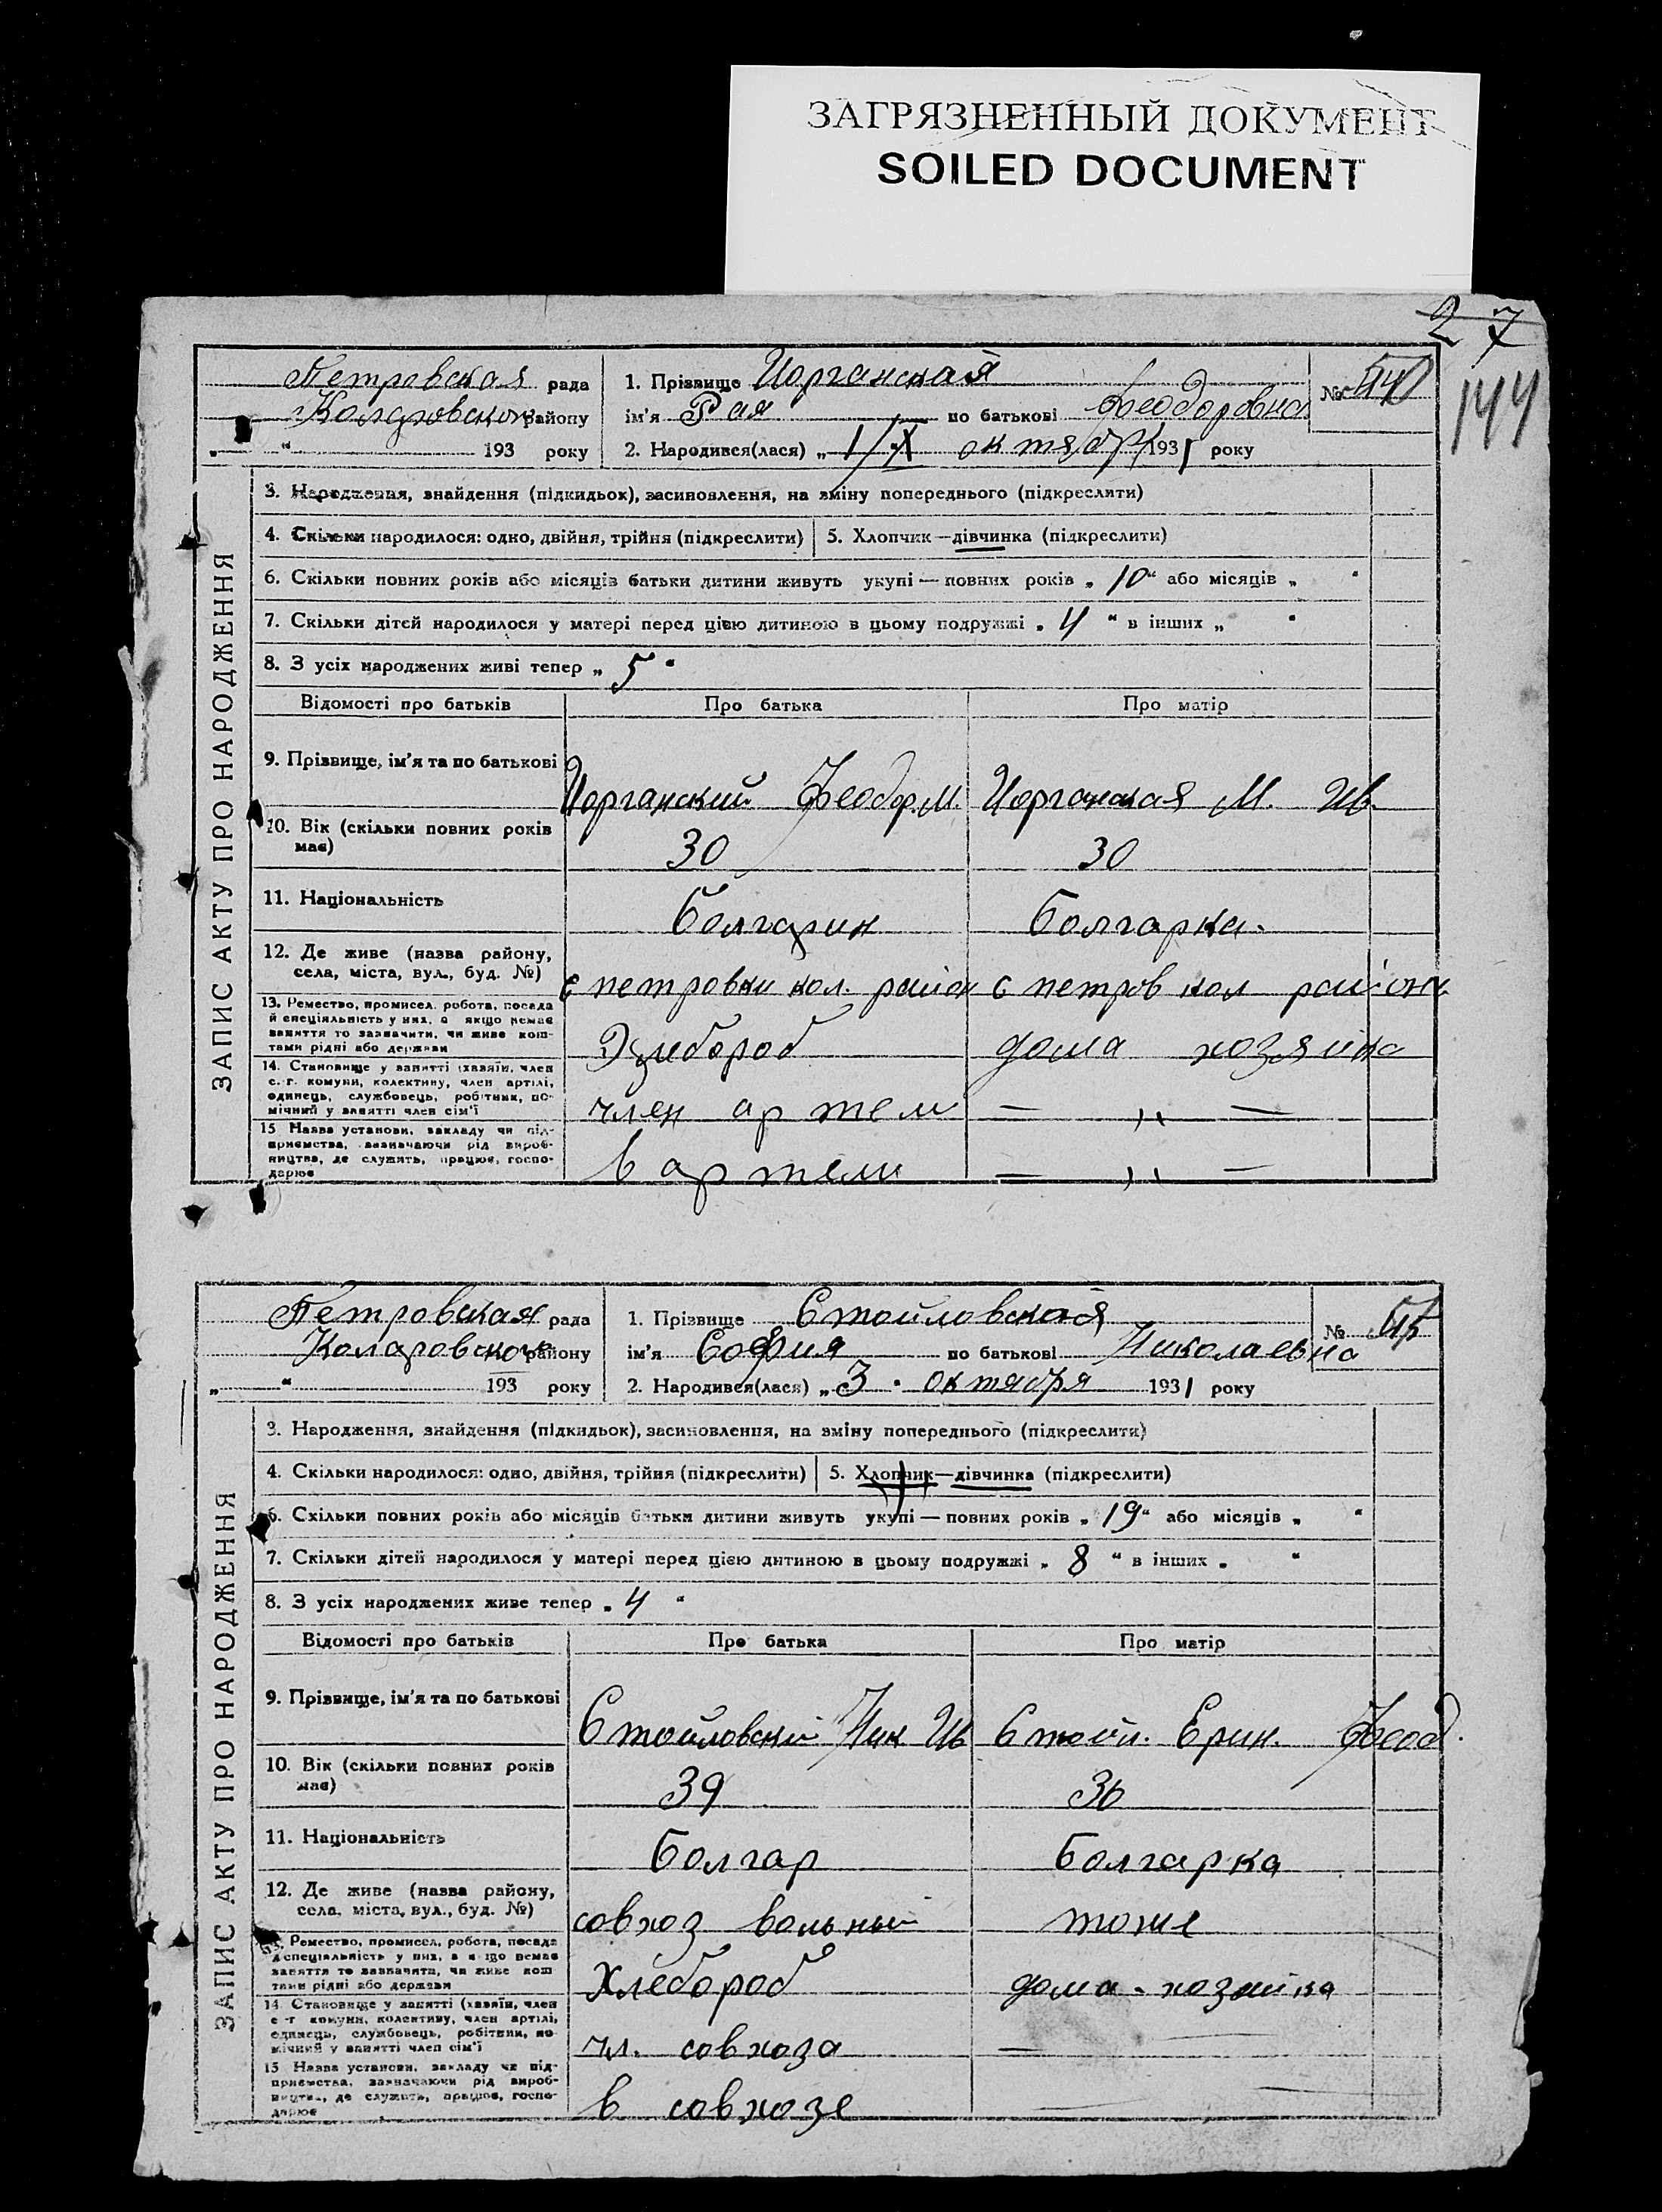 ЗАГРЯЗНЕННЫЙ ДОКУМЕНТ
SOILED DOCUMENT
27
144
Петровская рада
Коларовского району
„ “ 193 року
1. Прізвище Иорганская
ім'я Рая по батькові Феодоровна
2. Народився(лася) „1/X октября 1931 року
№ 44
ЗАПИС АКТУ ПРО НАРОДЖЕННЯ
3. Народження, знайдення (підкидьок), засиновлення, на зміну попереднього (підкреслити)
4. Скільки народилося: одно, двійня, трійня (підкреслити) 5. Хлопчик—дівчинка (підкреслити)
6. Скільки повних років або місяців батьки дитини живуть укупі — повних років „ 10“ або місяців „ “
7. Скільки дітей народилося у матері перед цією дитиною в цьому подружжі „ 4 “ в інших „ “
8. З усіх народжених живі тепер „ 5 “
Відомості про батьків Про батька Про матір
9. Прізвище, ім'я та по батькові Иорганский Феодор. М. Иорганская М. Ив.
10. Вік (скільки повних років має) 30 30
11. Національність Болгарин Болгарка.
12. Де живе (назва району, села, міста, вул., буд. №) с петровки кол. район с петров кол района
13. Ремество, промисел, робота, посада й спеціяльність у них, а якщо немає заняття то зазначити, чи живе коштами рідні або держави дома хозяйка
14. Становище у занятті (хазяїн, член с.-г. комуни, колективу, член артілі, одинець, службовець, робітник, помічний у занятті член сім'ї член артели — ,, —
15 Назва установи, закладу чи підприємства, зазначаючи рід виробництва, де служить, працює, господарює в артели — ,, —
Петровская рада
Коларовского району
„ “ 193 року
1. Прізвище Стойловская
ім'я София по батькові Николаевна
2. Народився(лася) „ 3 “ октября 1931 року
№ 45
ЗАПИС АКТУ ПРО НАРОДЖЕННЯ
3. Народження, знайдення (підкидьок), засиновлення, на зміну попереднього (підкреслити)
4. Скільки народилося: одно, двійня, трійня (підкреслити) 5. Хлопчик—дівчинка (підкреслити)
6. Скільки повних років або місяців батьки дитини живуть укупі — повних років „ 19“ або місяців „ “
7. Скільки дітей народилося у матері перед цією дитиною в цьому подружжі „ 8 “ в інших „ “
8. З усіх народжених живе тепер „ 4 “
Відомості про батьків Про батька Про матір
9. Прізвище, ім'я та по батькові Стойловский Ник Ив Стойл. Ерин. Феод.
10. Вік (скільки повних років має) 39 36
11. Національність Болгар Болгарка
12. Де живе (назва району, села, міста, вул., буд. №) совхоз вольный тоже
13. Ремество, промисел, робота, посада й спеціяльність у них, а якщо немає заняття то зазначити, чи живе коштами рідні або держави Хлебороб дома-хозяйка
14. Становище у занятті (хазяїн, член с-г комуни, колективу, член артілі, одинець, службовець, робітник, помічний у занятті член сім'ї чл. совхоза —
15 Назва установи, закладу чи підприємства, зазначаючи рід виробництва, де служить, працює, господарює в совхозе —